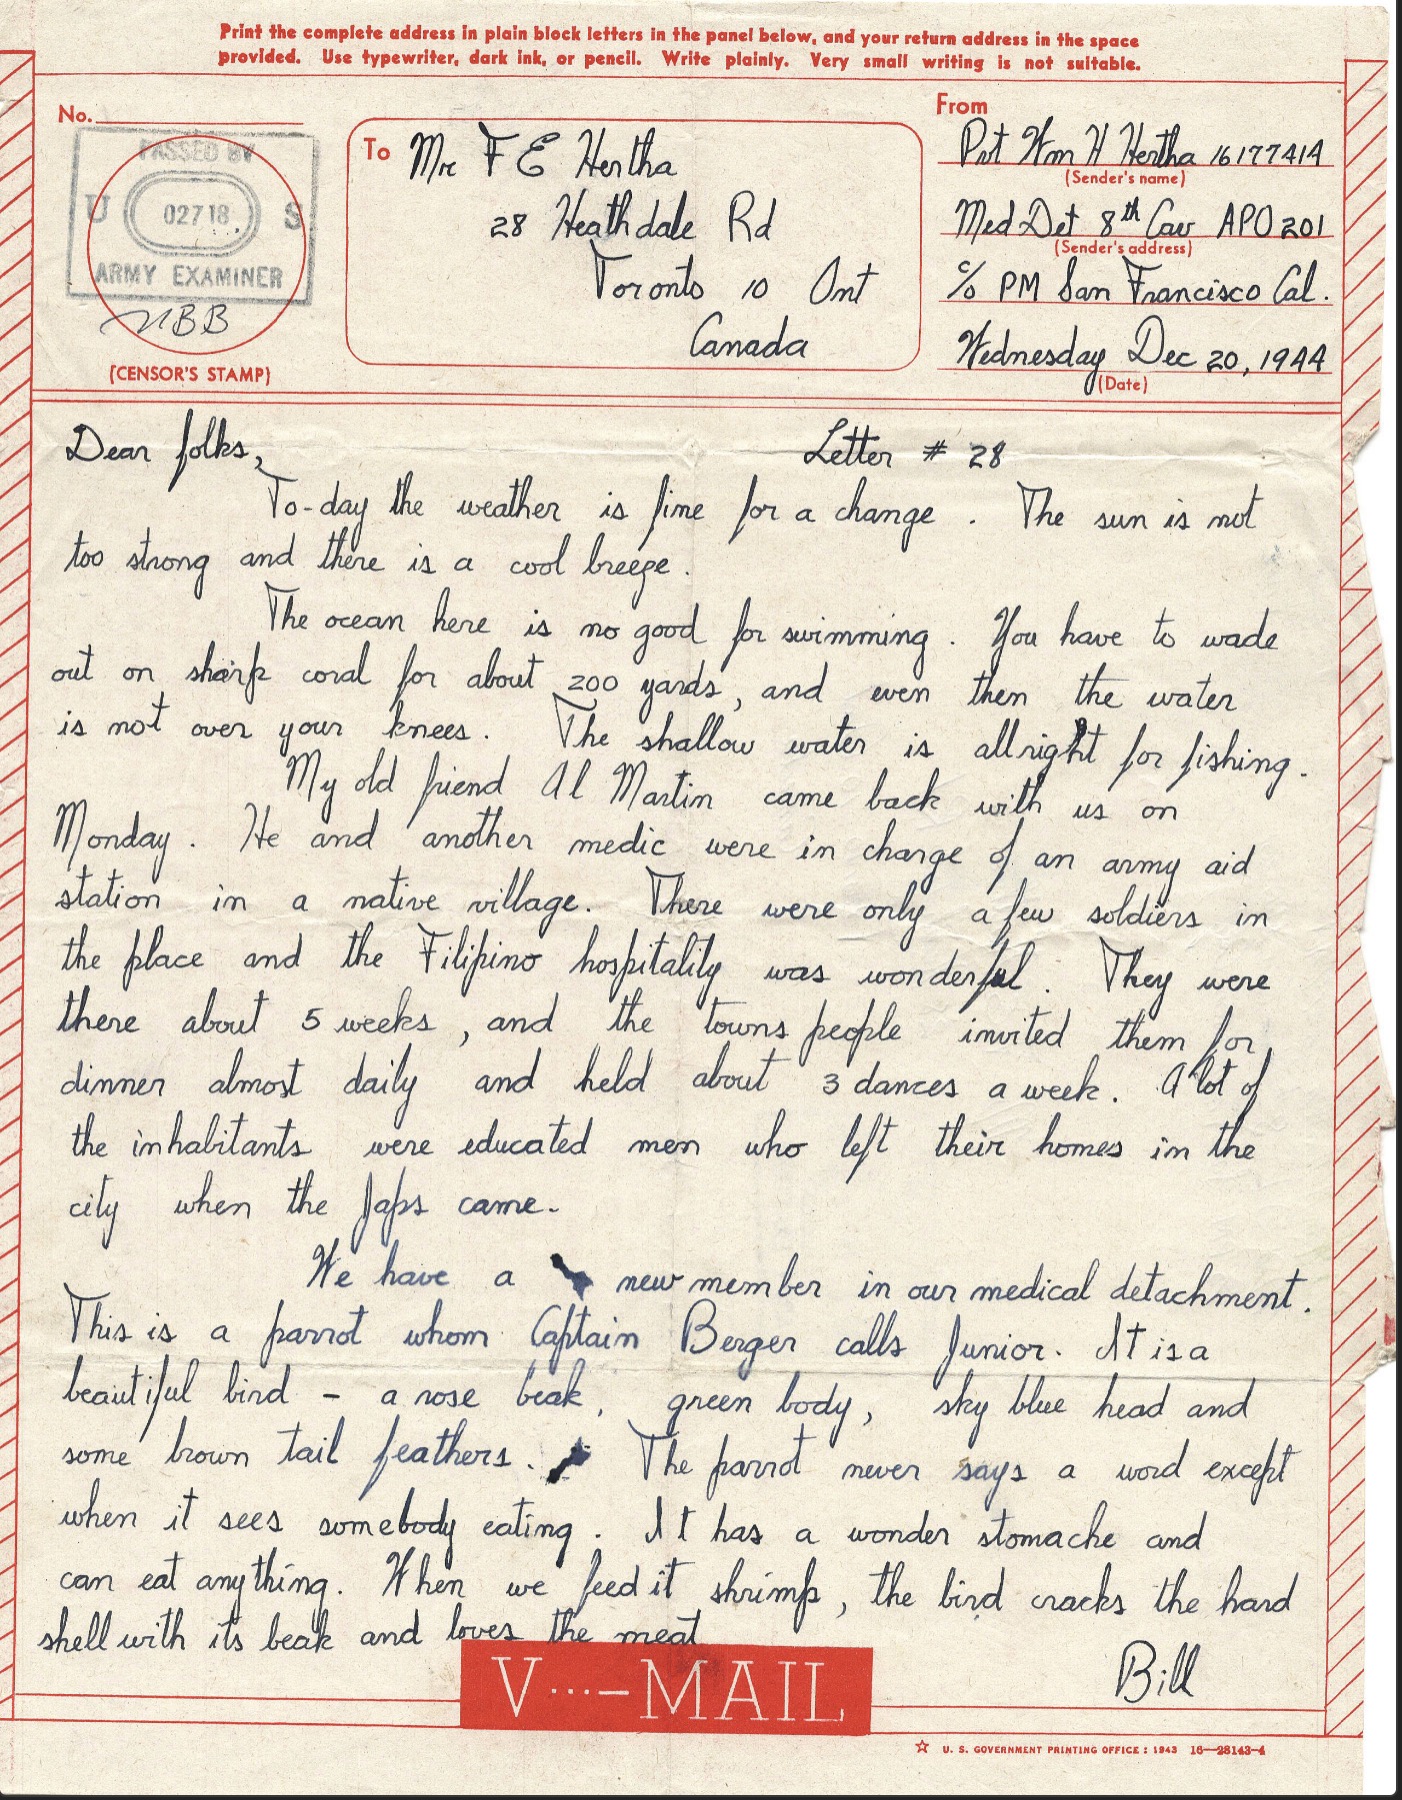 Print the complete address in plain block letters in the panel below, and your return address in the space
provided. Use typewriter, dark ink, or pencil. Write plainly. Very small writing is not suitable.
No.
PASSED BY
U 02718 S
ARMY EXAMINER
(CENSOR'S STAMP)
To Mr F E Hertha
28 Heathdale Rd
Toronto 10 Ont
Canada
From
Pvt Wm H Hertha 16177414
(Sender's name)
Med Det 8th Cav APO 201
(Sender's address)
c/o PM San Francisco Cal.
Wednesday Dec 20, 1944
(Date)
Dear folks, Letter # 28
To-day the weather is fine for a change. The sun is not
too strong and there is a cool breeze.
The ocean here is no good for swimming. You have to wade
out on sharp coral for about 200 yards, and even then the water
is not over your knees. The shallow water is allright for fishing.
My old friend Al Martin came back with us on
Monday. He and another medic were in charge of an army aid
station in a native village. There were only a few soldiers in
the place and the Filipino hospitality was wonderful. They were
there about 5 weeks, and the towns people invited them for
dinner almost daily and held about 3 dances a week. A lot of
the inhabitants were educated men who left their homes in the
city when the Japs came.
We have a new member in our medical detachment.
This is a parrot whom Captain Berger calls Junior. It is a
beautiful bird - a rose beak, green body, sky blue head and
some brown tail feathers. The parrot never says a word except
when it sees somebody eating. It has a wonder stomache and
can eat anything. When we feed it shrimp, the bird cracks the hard
shell with its beak and loves the meat
Bill
V···—MAIL
☆ U. S. GOVERNMENT PRINTING OFFICE : 1943 16—28143-4